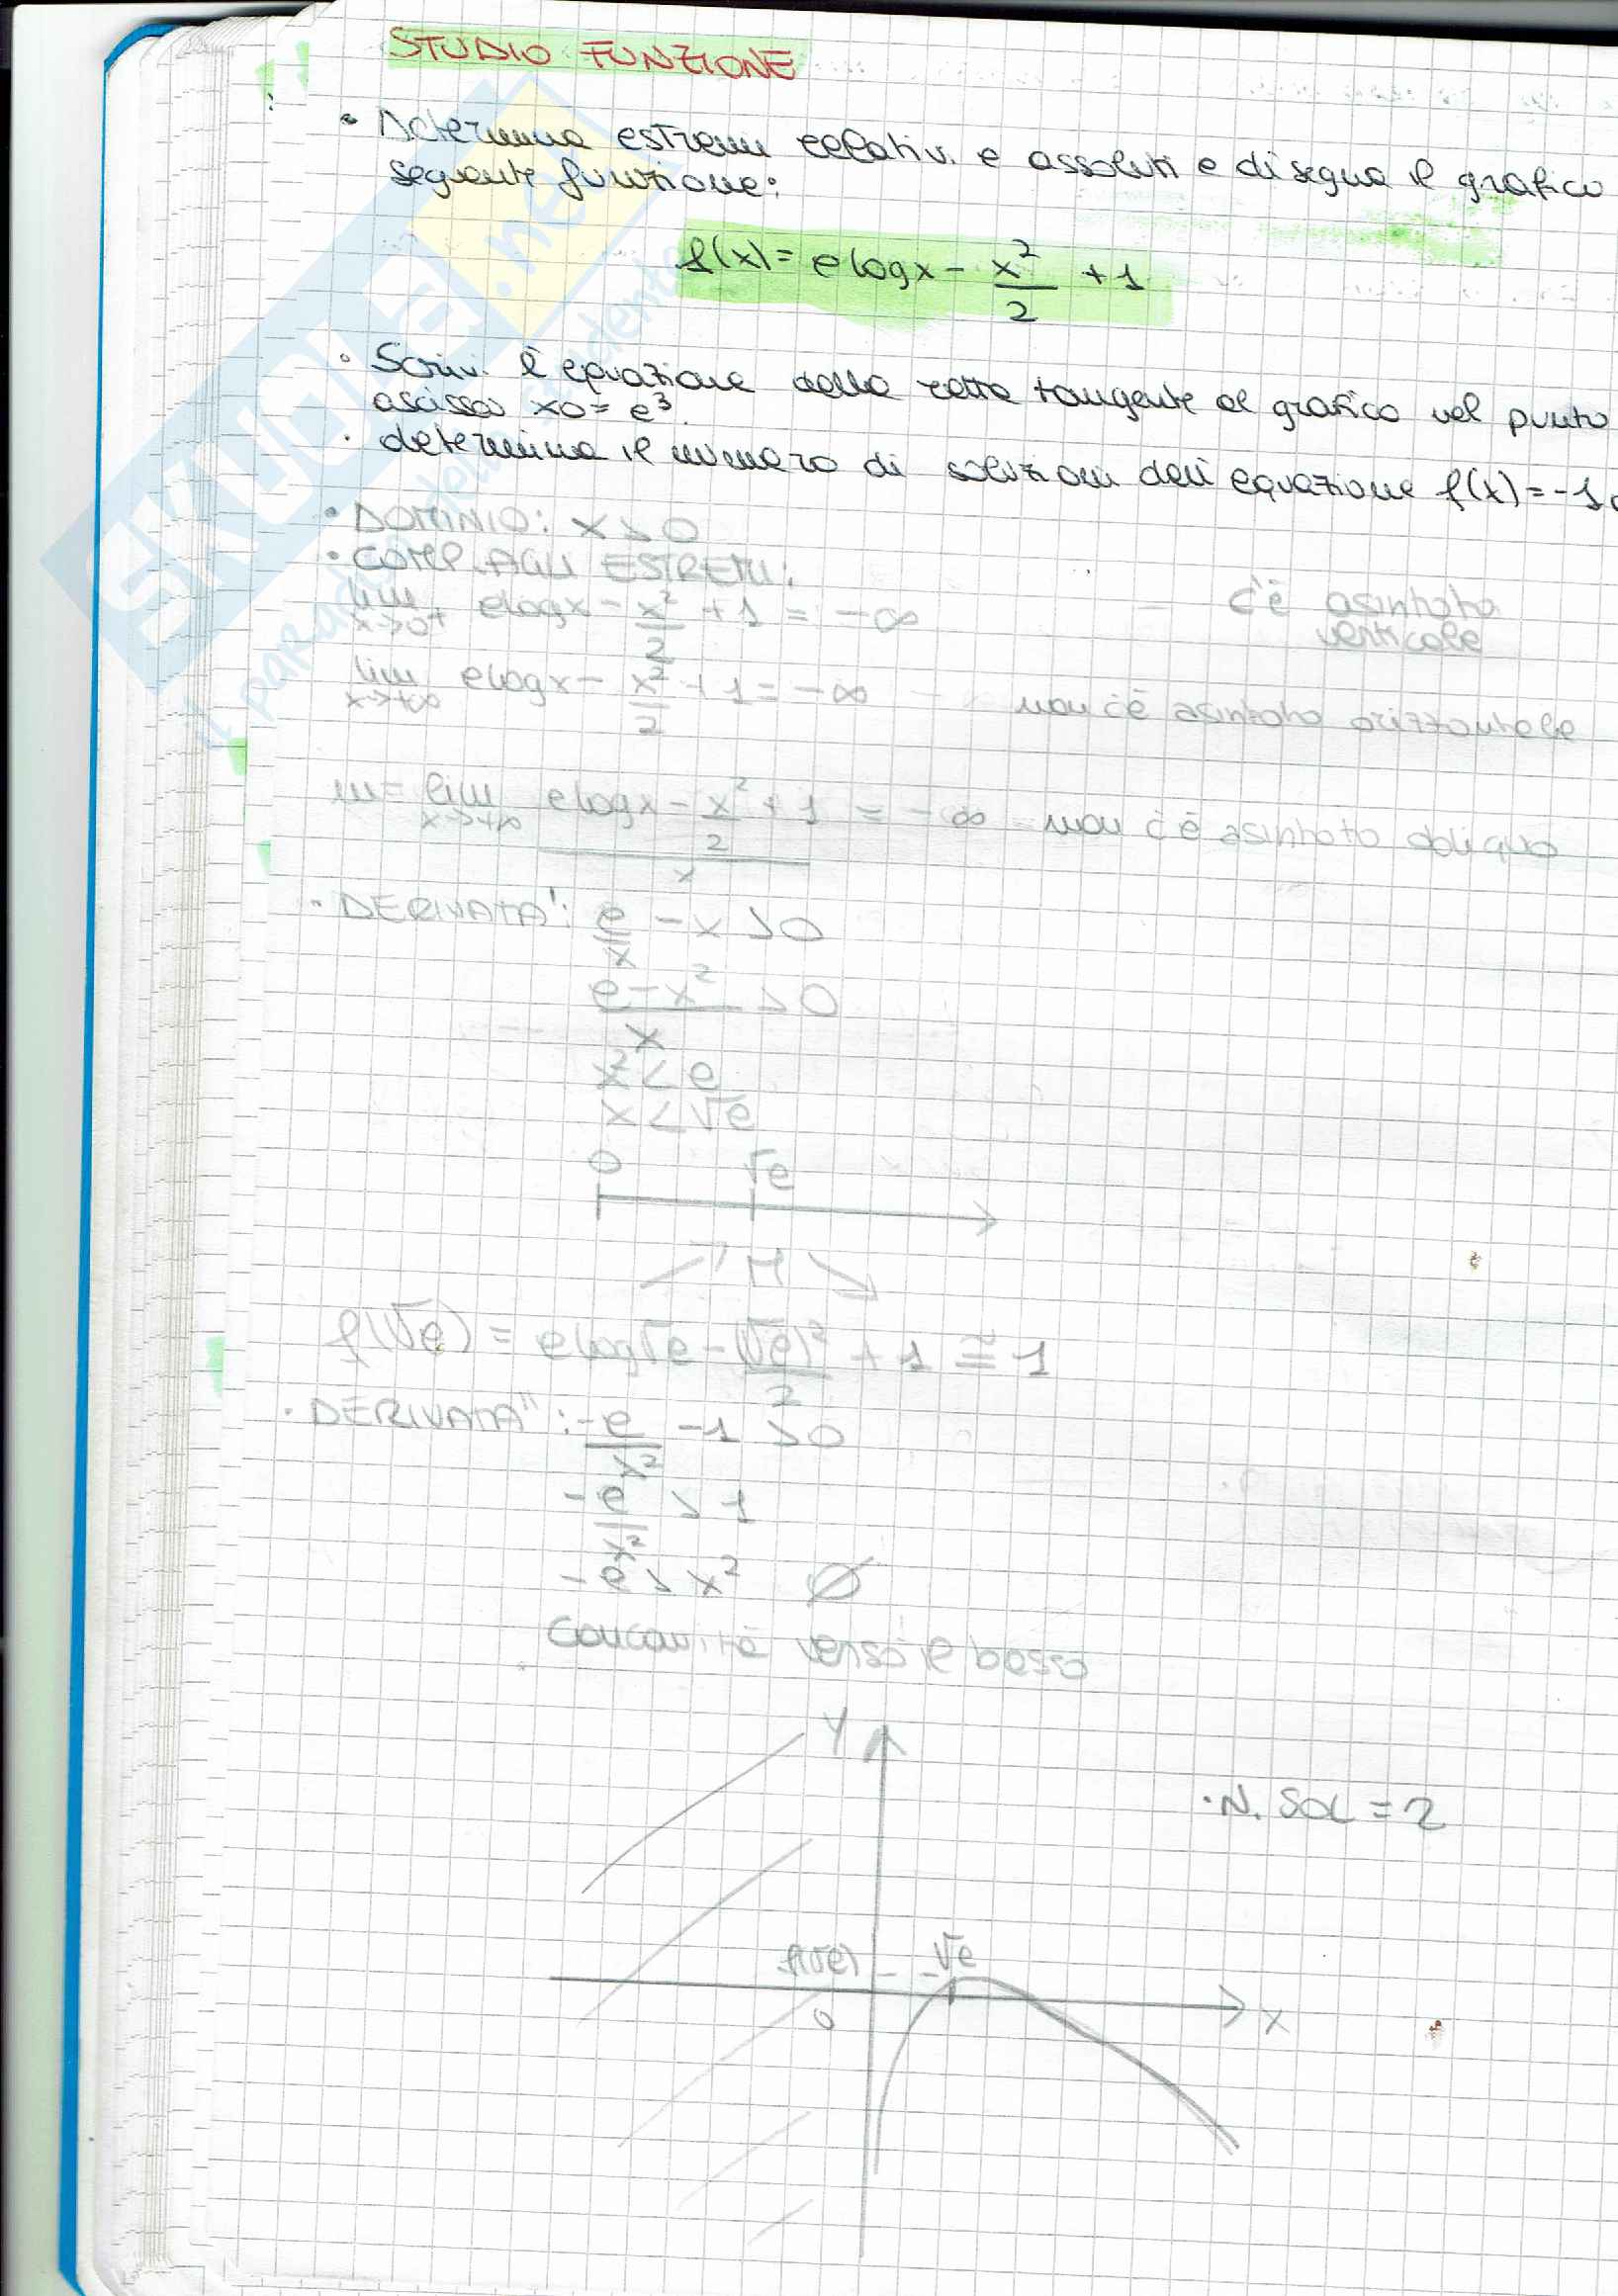 STUDIO FUNZIONE
• Determina estremi relativi e assoluti e disegna il grafico
seguente funzione:
f(x) = e logx - x²/2 + 1
• Scrivi l'equazione della retta tangente al grafico nel punto
ascissa x0 = e³
• determina il numero di soluzioni dell'equazione f(x) = -10
• DOMINIO: x > 0
• COMP. AGLI ESTREMI:
lim x→0+ elogx - x²/2 + 1 = -∞ c'è asintoto
verticale
lim x→+∞ elogx - x²/2 + 1 = -∞ non c'è asintoto orizzontale
m = lim x→+∞ (elogx - x²/2 + 1)/x = -∞ non c'è asintoto obliquo
• DERIVATA': e/x - x > 0
(e - x²)/x > 0
x² < e
x < √e
0 √e
M
f(√e) = elog√e - (√e)²/2 + 1 ≅ 1
• DERIVATA'': -e/x² - 1 > 0
-e/x² > 1
-e > x² ∅
concavità verso il basso
Y
• N. SOL = 2
f(√e) √e
0
x
SKUOLA.net
il paradiso dello studente